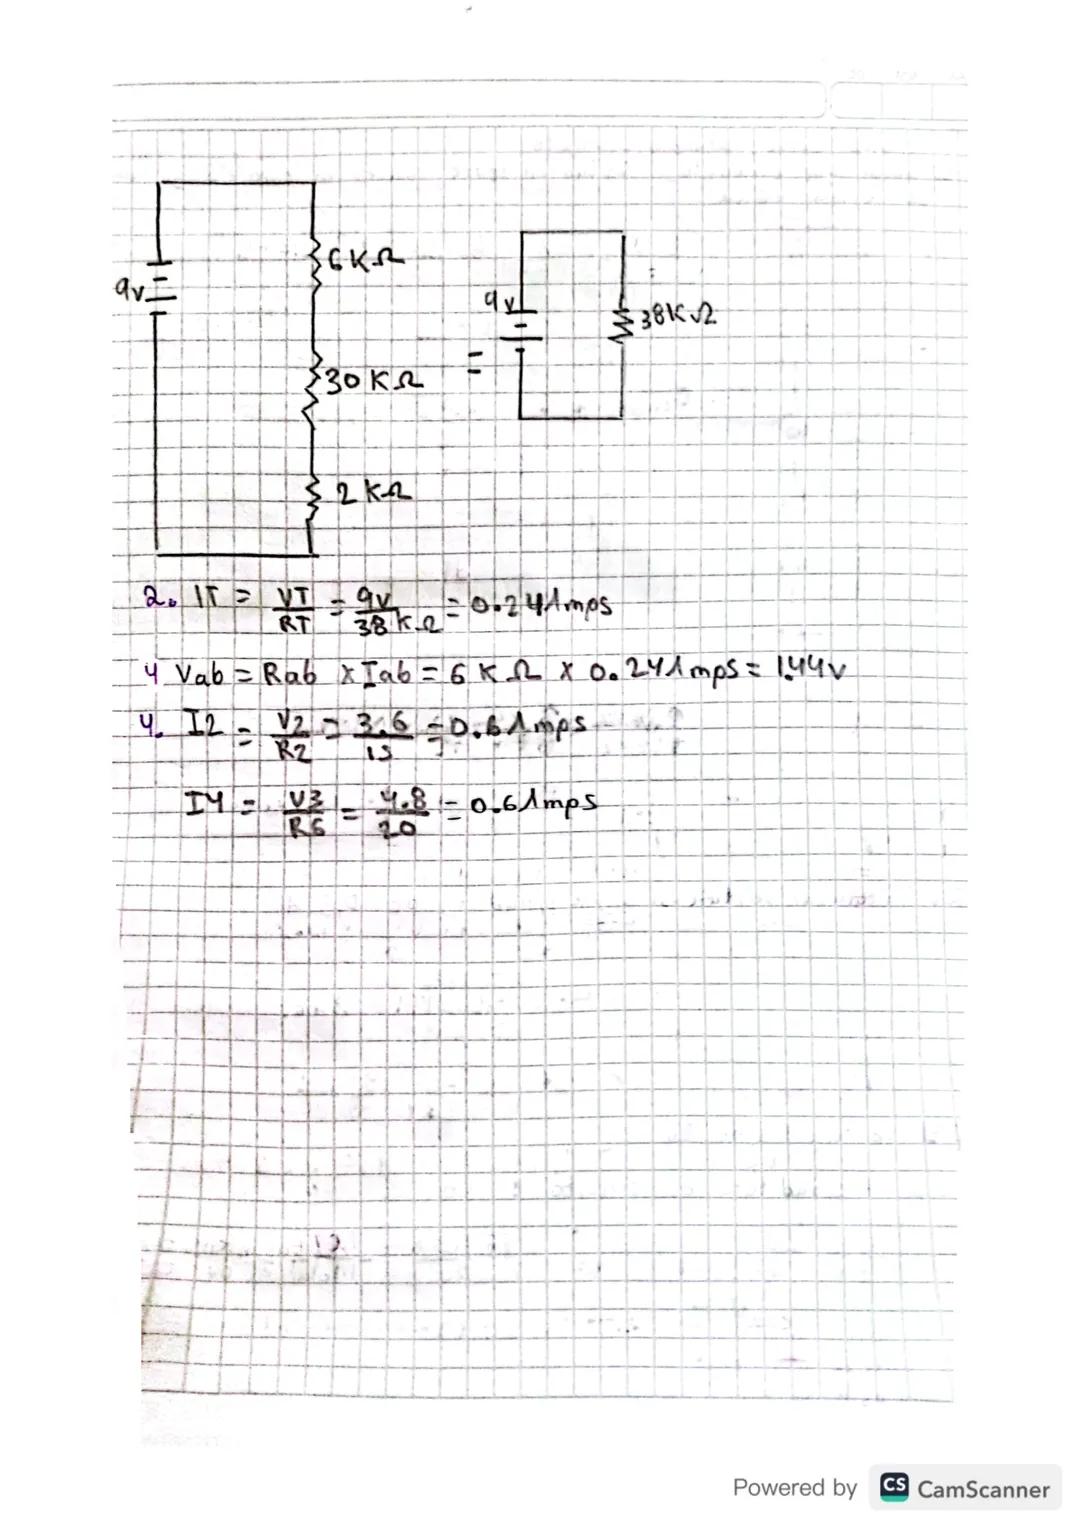 6KΩ
9v
9v
38KΩ
=
30KΩ
2KΩ
2. IT = VT/RT = 9v/38KΩ = 0.24Amps
4 Vab = Rab x Iab = 6KΩ x 0.24Amps = 1.44v
4. I2 = V2/R2 = 3.6/15 = 0.6Amps
I4 = V3/R6 = 4.8/20 = 0.6Amps
Powered by CS CamScanner